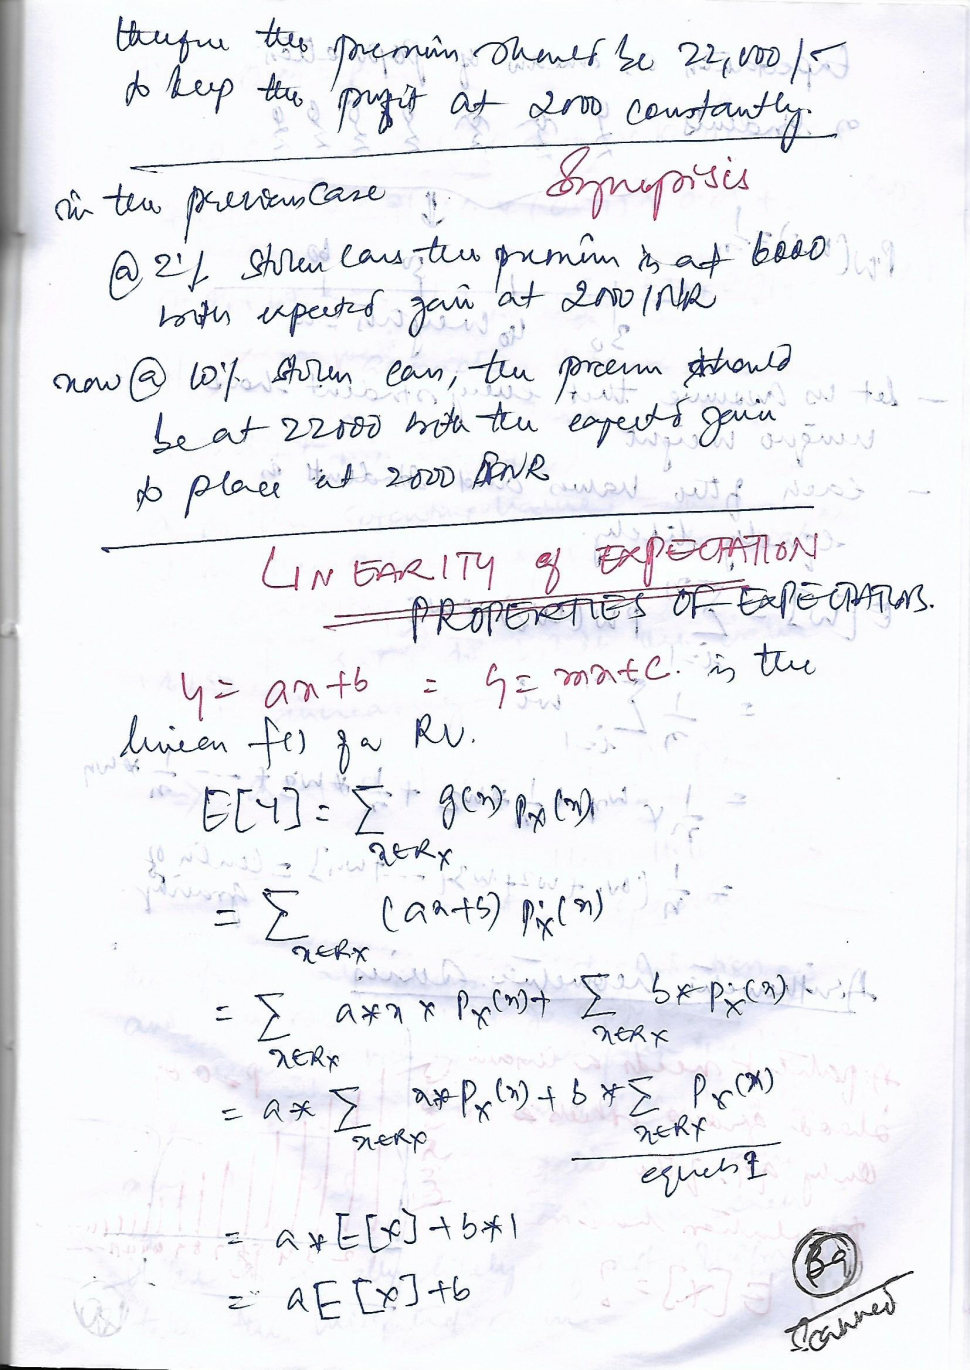 therefore the premium should be 22,000/-
to keep the profit at 2000 constantly.
Synopisis
in the previous case
@ 2% stolen cars the premium is at 6000
with expected gain at 2000 INR
now @ 10% stolen cars, the premium should
be at 22000 with the expected gain
to place at 2000 INR
LINEARITY of EXPECTATION
PROPERTIES OF EXPECTATIONS.
Y = ax+b = y = mx+c. is the
linear f() of a RV.
E[Y] = ∑ g(x) Pₓ(x)
x∈Rₓ
= ∑ (ax+b) Pₓ(x)
x∈Rₓ
= ∑ a*x* Pₓ(x) + ∑ b* Pₓ(x)
x∈Rₓ x∈Rₓ
= a* ∑ x* Pₓ(x) + b * ∑ Pₓ(x)
x∈Rₓ x∈Rₓ
equals 1
= a*E[x] + b*1
= aE[x] + b
89
Scanned